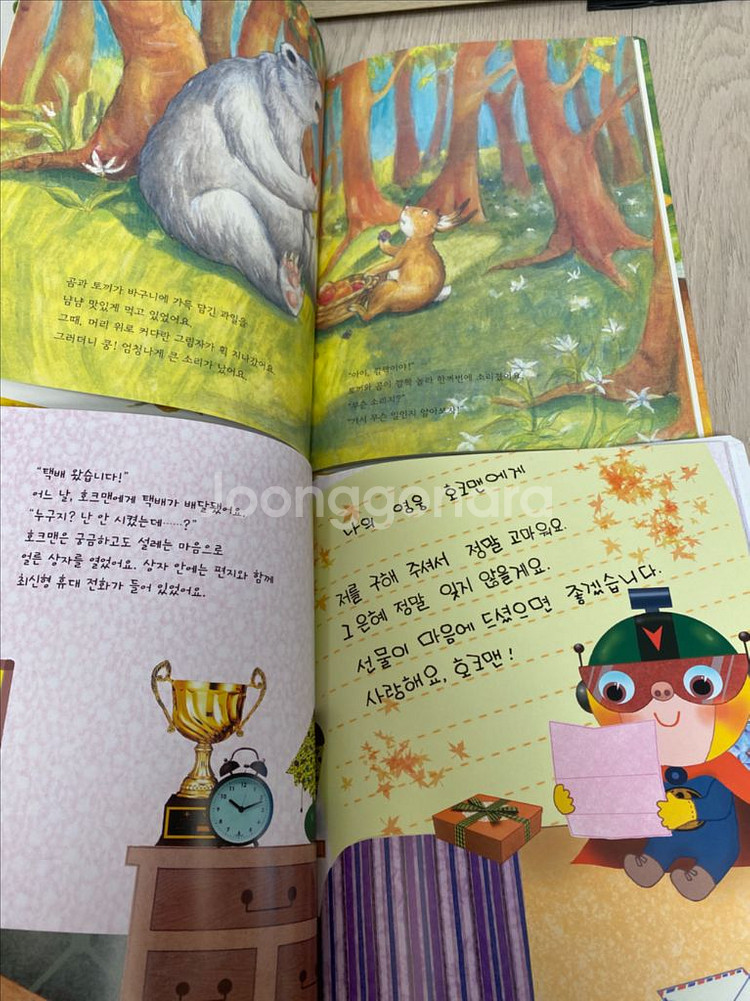 곰과 토끼가 바구니에 가득 담긴 과일을
냠냠 맛있게 먹고 있었어요.
그때, 머리 위로 커다란 그림자가 휙 지나갔어요.
그러더니 쿵! 엄청나게 큰 소리가 났어요.
"아이, 깜짝이야!"
토끼와 곰이 깜짝 놀라 한꺼번에 소리쳤어요.
"무슨 소리지?"
"가서 무슨 일인지 알아보자!"
"택배 왔습니다!"
어느 날, 호크맨에게 택배가 배달됐어요.
"누구지? 난 안 시켰는데……?"
호크맨은 궁금하고도 설레는 마음으로
얼른 상자를 열었어요. 상자 안에는 편지와 함께
최신형 휴대 전화가 들어 있었어요.
나의 영웅 호크맨에게
저를 구해 주셔서 정말 고마워요.
그 은혜 정말 잊지 않을게요.
선물이 마음에 드셨으면 좋겠습니다.
사랑해요, 호크맨!
loonggonara